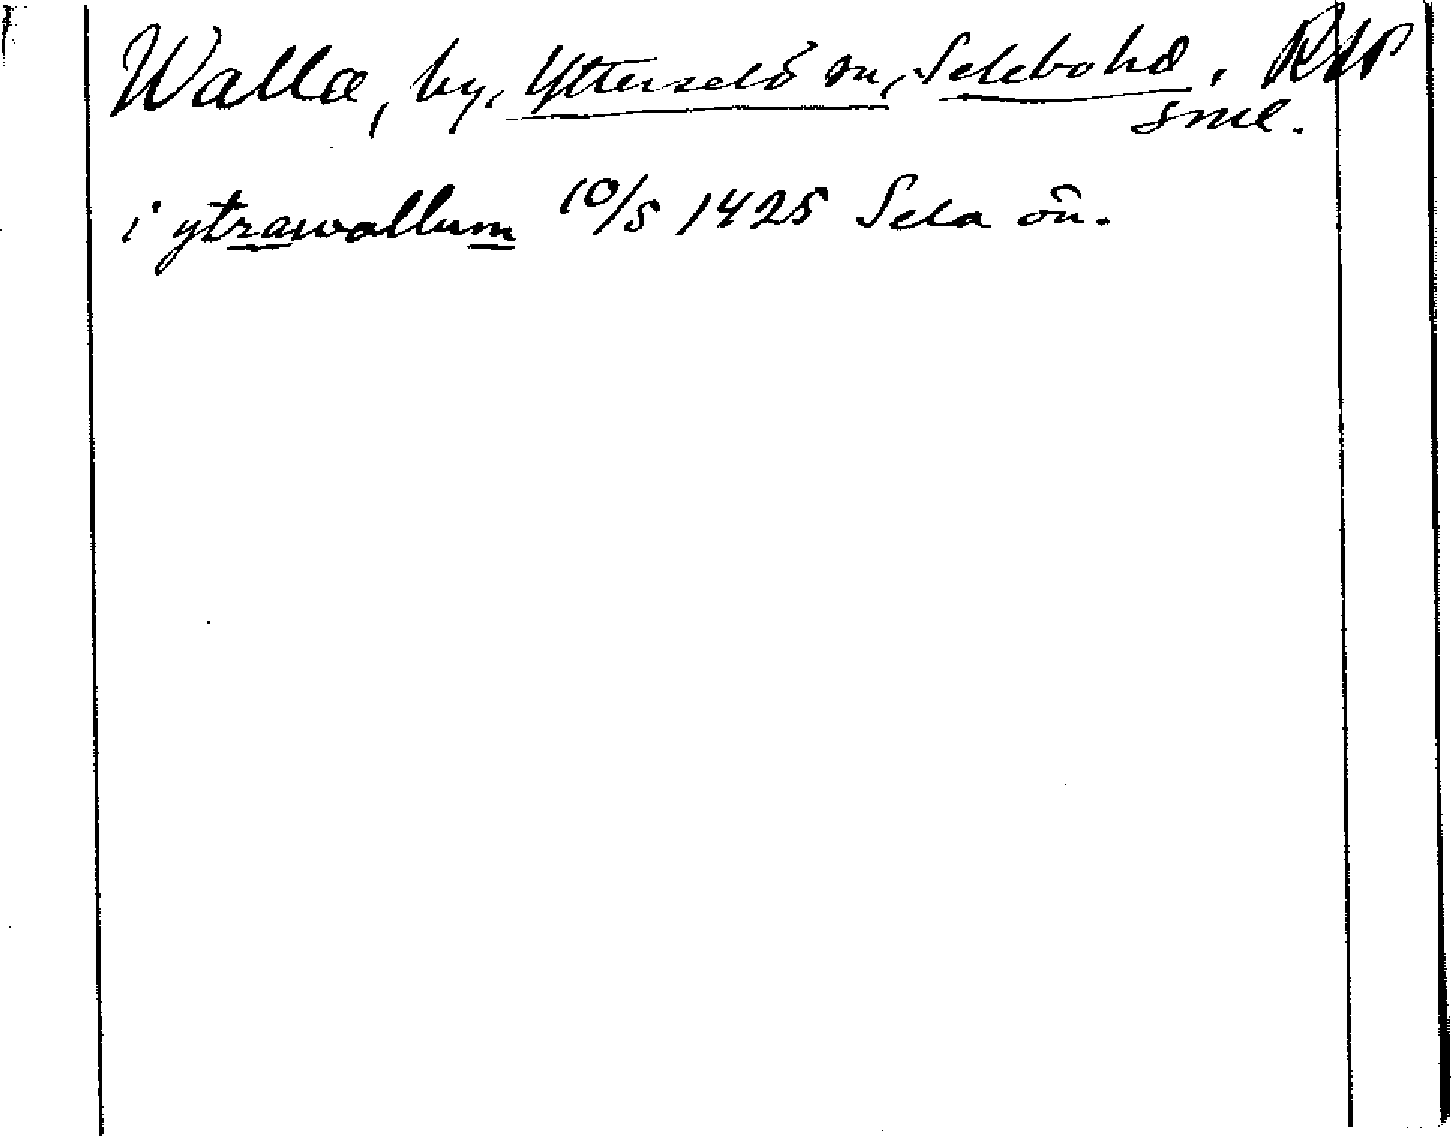 Walla, by, Ytterselö sn, Selebo hd, RAP
Sml.
i ytrawallum 10/5 1425 Sela sn.